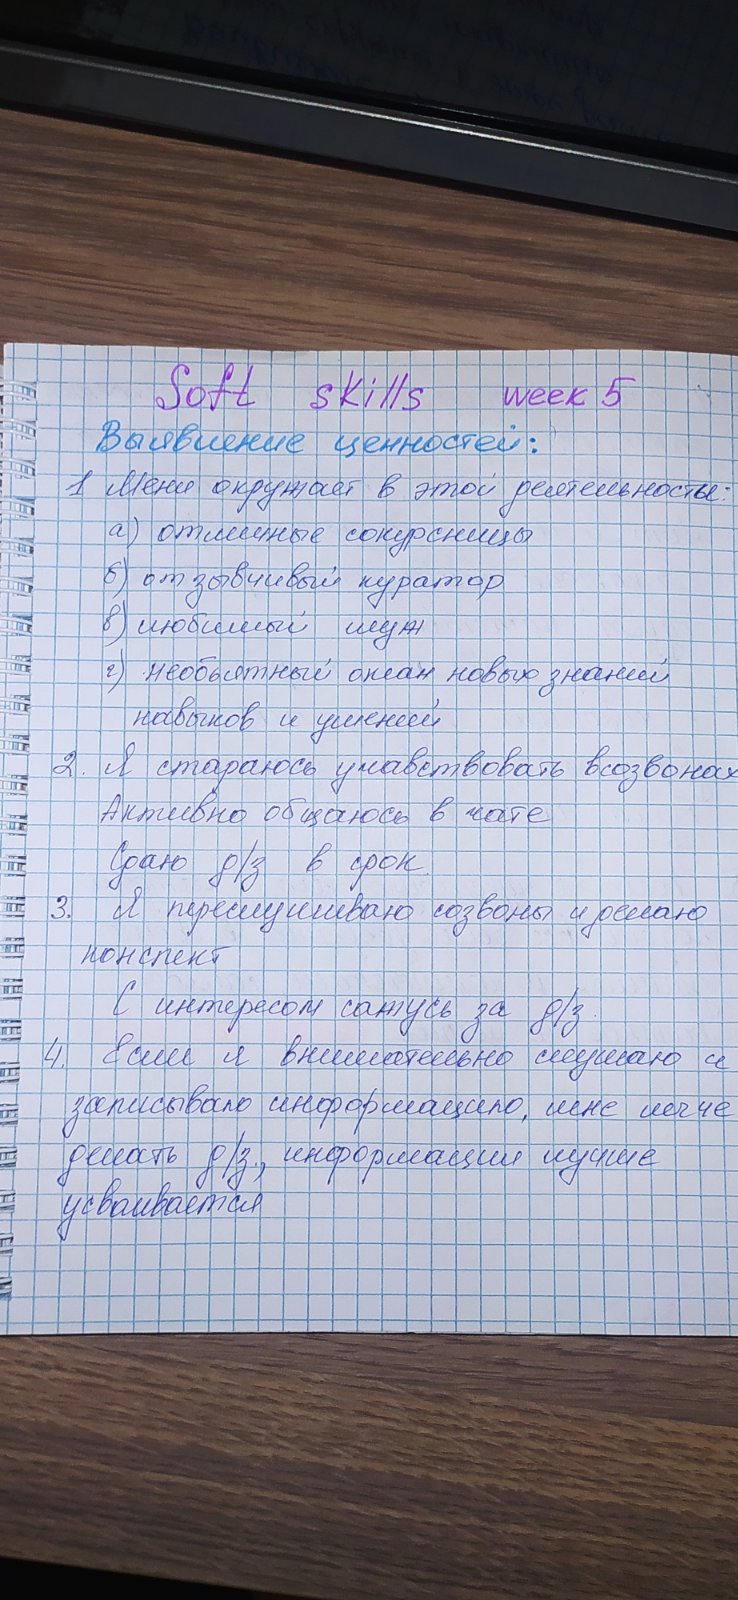 Soft skills week 5
Выявление ценностей:
1 Меня окружает в этой деятельносты:
а) отличные сокурсницы
б) отзывчивый куратор
в) любимый муж
г) необъятный океан новых знаний
навыков и умений
2. Я стараюсь учавствовать всозвонах
Активно общаюсь в чате
Сдаю д/з в срок
3. Я переслушиваю созвоны и делаю
конспект
С интересом сажусь за д/з.
4. Если я внимательно слушаю и
записываю информацию, мне легче
делать д/з, информация лучше
усваивается